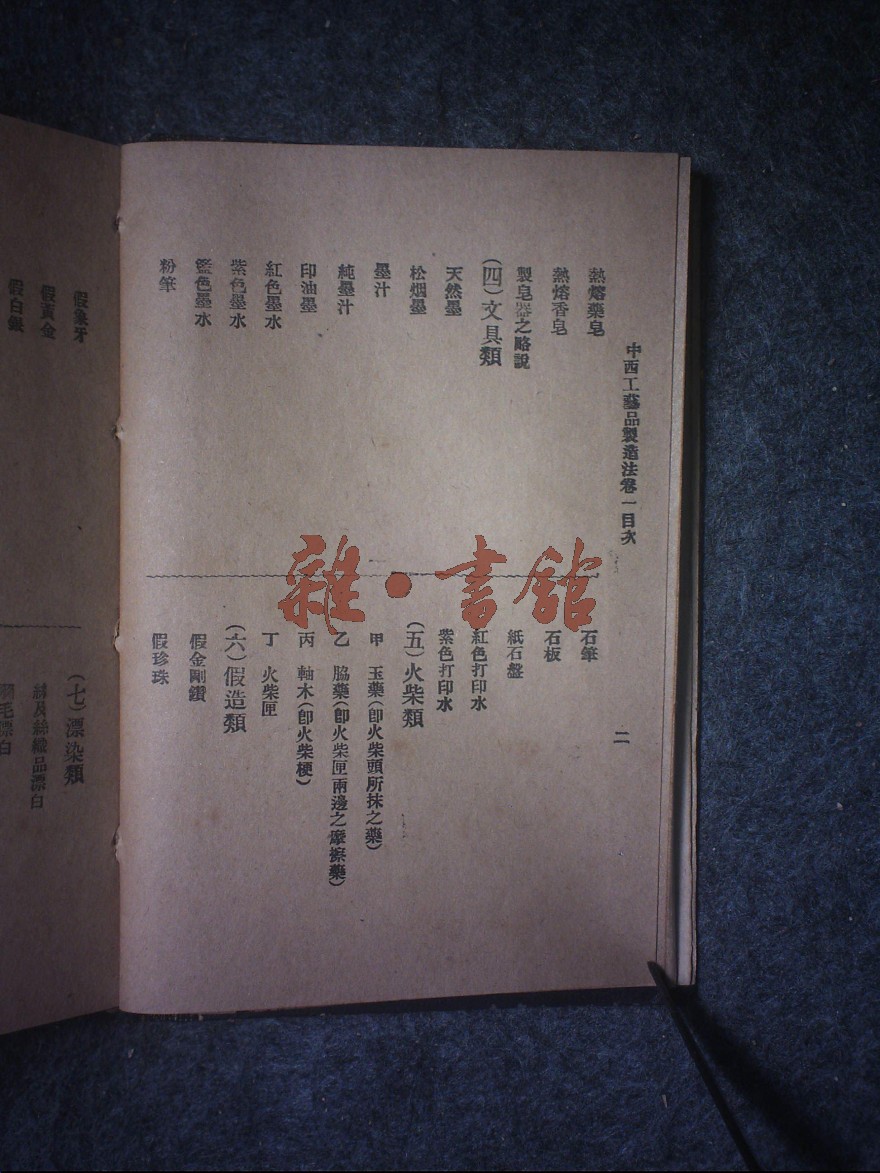 中西工藝品製造法卷一目次
二
熱熔藥皂
熱熔香皂
製皂器之略說
(四)文具類
天然墨
松烟墨
墨汁
純墨汁
印油墨
紅色墨水
紫色墨水
籃色墨水
粉筆
石筆
石板
紙石盤
紅色打印水
紫色打印水
(五)火柴類
甲 玉藥(卽火柴頭所抹之藥)
乙 脇藥(卽火柴匣兩邊之摩擦藥)
丙 軸木(卽火柴梗)
丁 火柴匣
(六)假造類
假金剛鑽
假珍珠
假象牙
假黃金
假白銀
(七)漂染類
絲及絲織品漂白
羽毛漂白
雜·書館